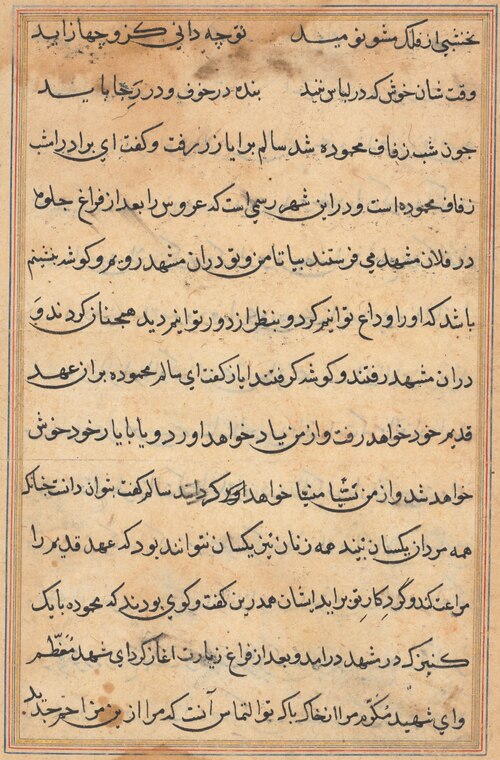 نخشبی از فلک مشو نومید تو چه دانی کزو چها زاید
وقت شان خوش که در لباس نیند بنده در خوف و در رجا باید
چون شب زفاف محموده شد سالم برایاز رفت و کفت ای برادر امشب
زفاف محموده است و در این شهر رسمی است که عروس را بعد از فراغ جلوه
در فلان مشهد می فرستند بیا تا من و تو دران مشهد رویم و کوشه بنشینم
باشد که او را وداع توانیم کرد و بنظر از دور توانیم دید همچنان کردند و
دران مشهد رفتند و کوشه کرفتند ایاز کفت ای سالم محموده بر ان عهد
قدیم خود خواهد رفت و از من یاد خواهد اورد و یا با یار خود خوش
خواهد شد و از من خواهد کردانید سالم کفت نتوان دانست چنانکه
همه مردان یکسان نیند همه زنان نیز یکسان نتوانند بود که عهد قدیم را
مراعت کند و گرد کار تو براید ایشان همدرین کفت و کوی بودند که محموده با یک
کنیزک در مشهد درامد و بعد از فراغ زیارت اغاز کرد ای شهد معظم
و ای شهید مکرم مرا از خاک پاک تو التماس آنست که مرا از